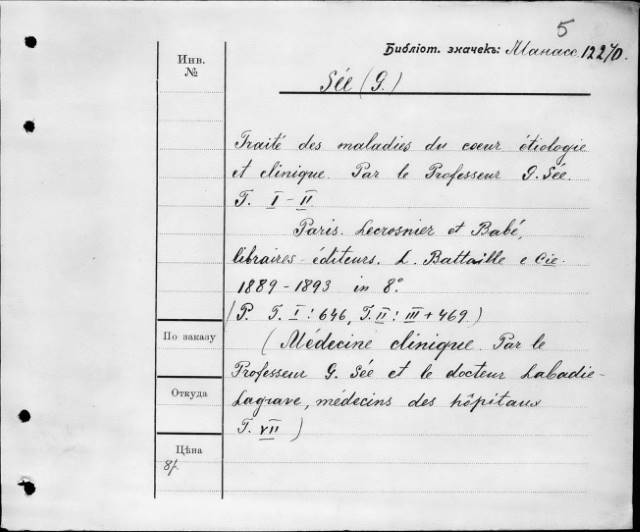 5
Библіот. значекъ: Манасс. 12270.
Инв.
№
Sée (G.)
Traité des maladies du cœur étiologie
et clinique. Par le Professeur G. Sée.
T. I-II.
Paris. Lecrosnier et Babé,
libraires-éditeurs. L. Battaille e Cie.
1889-1893 in 8°.
(P. T. I: 646, T. II: III + 469.)
По заказу
(Médecine clinique. Par le
Professeur G. Sée et le docteur Labadie-
Откуда
Lagrave, médecins des hôpitaux
T. VII)
Цѣна